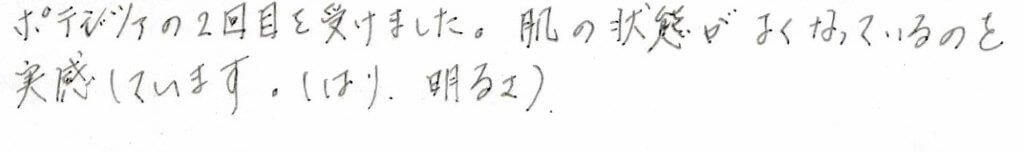 ポテンツァの2回目を受けました。肌の状態がよくなっているのを
実感しています。(はり、明るさ)